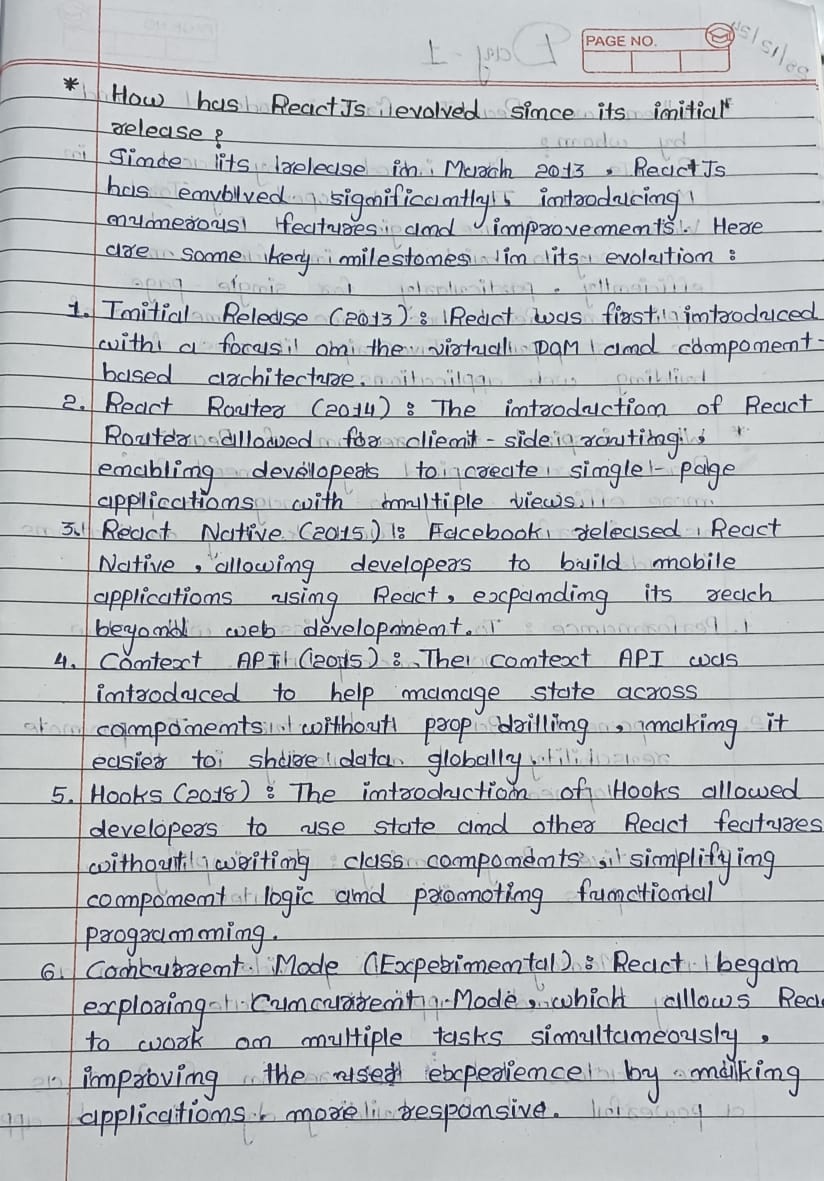 PAGE NO.
* How has ReactJs evolved since its initial
release?
Since its release in March 2013, ReactJs
has emvolved significantly, introducing
numerous features and improvements. Here
are some key milestones in its evolution:
1. Initial Release (2013): React was first introduced
with a focus on the virtual DOM and component-
based architecture.
2. React Router (2014): The introduction of React
Router allowed for client-side routing,
enabling developers to create single-page
applications with multiple views.
3. React Native (2015): Facebook released React
Native, allowing developers to build mobile
applications using React, expanding its reach
beyond web development.
4. Context API (2015): The context API was
introduced to help manage state across
components without prop drilling, making it
easier to share data globally.
5. Hooks (2018): The introduction of Hooks allowed
developers to use state and other React features
without writing class components, simplifying
component logic and promoting functional
programming.
6. Mode (Experimental): React began
exploring Mode, which allows Reac
to work on multiple tasks simultaneously,
improving the user experience by making
applications more responsive.